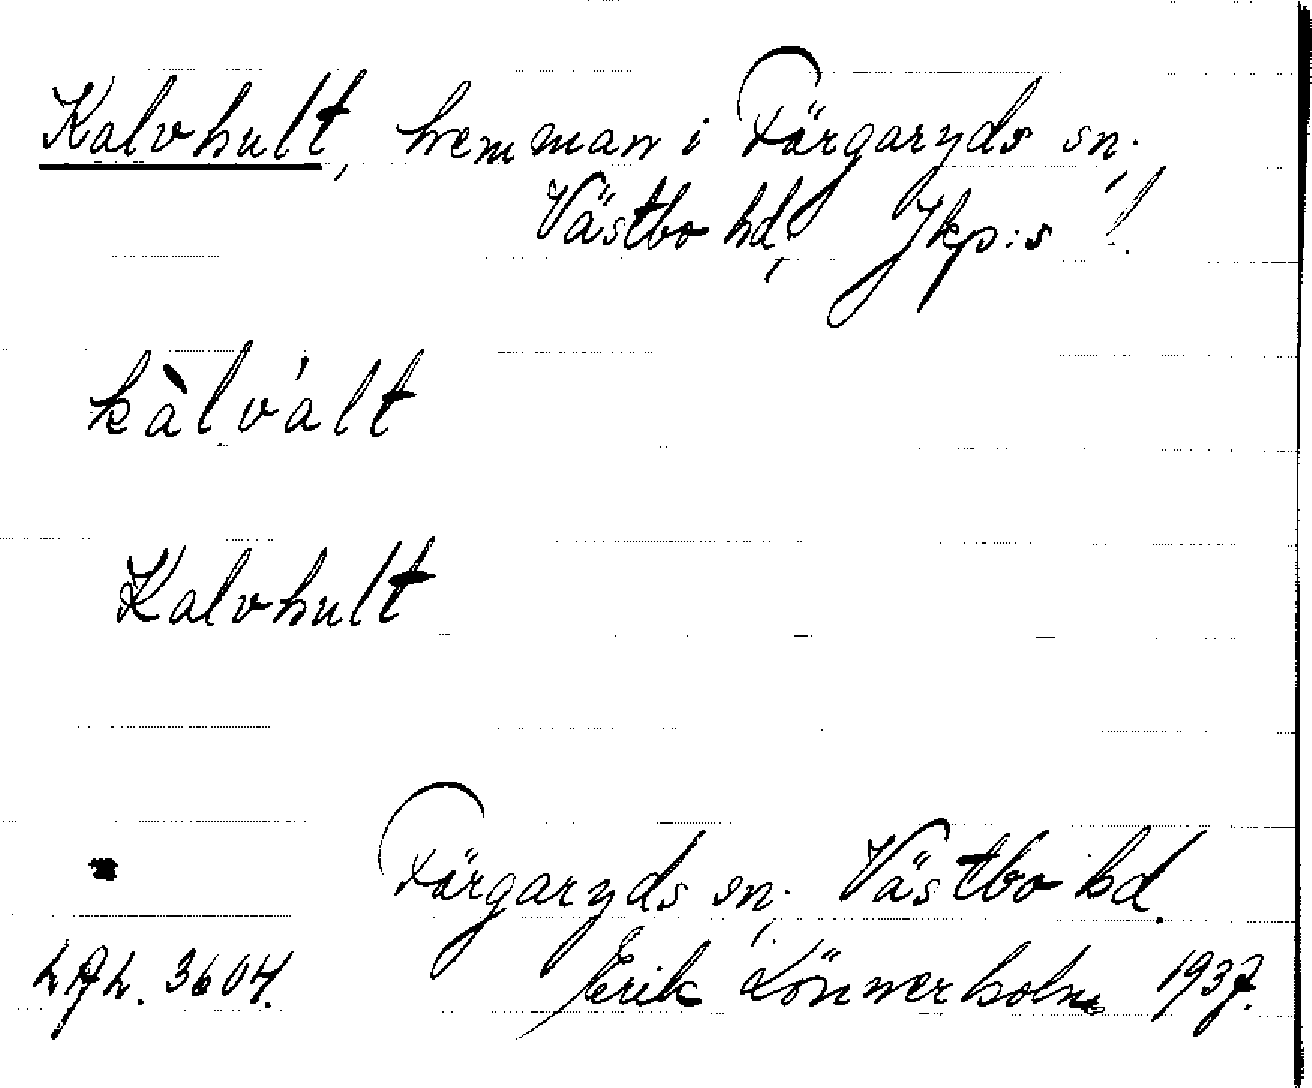 Kalvhult, hemman i Färgaryds sn.,
Västbo hd, Jkp:s l.
kàlvált
Kalvhult
Färgaryds sn., Västbo hd.
3604. Erik Lönnerholm 1937.